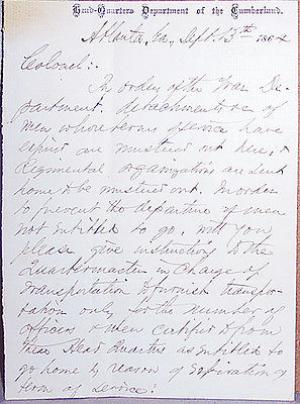 Head-Quarters Department of the Cumberland.
Atlanta, Ga., Sept. 13th 1864
Colonel:
In orders of the War De-
partment. detachments &c of
men whose terms of service have
expired are mustered out here, &
Regimental organizations are sent
home to be mustered out. In order
to prevent the departure of men
not entitled to go, will you
please give instructions to the
Quartermaster in Charge of
transportation to furnish transpor-
tation only for the number of
officers & men certified to from
these Head Quarters as entitled to
go home by reason of expiration of
term of service.